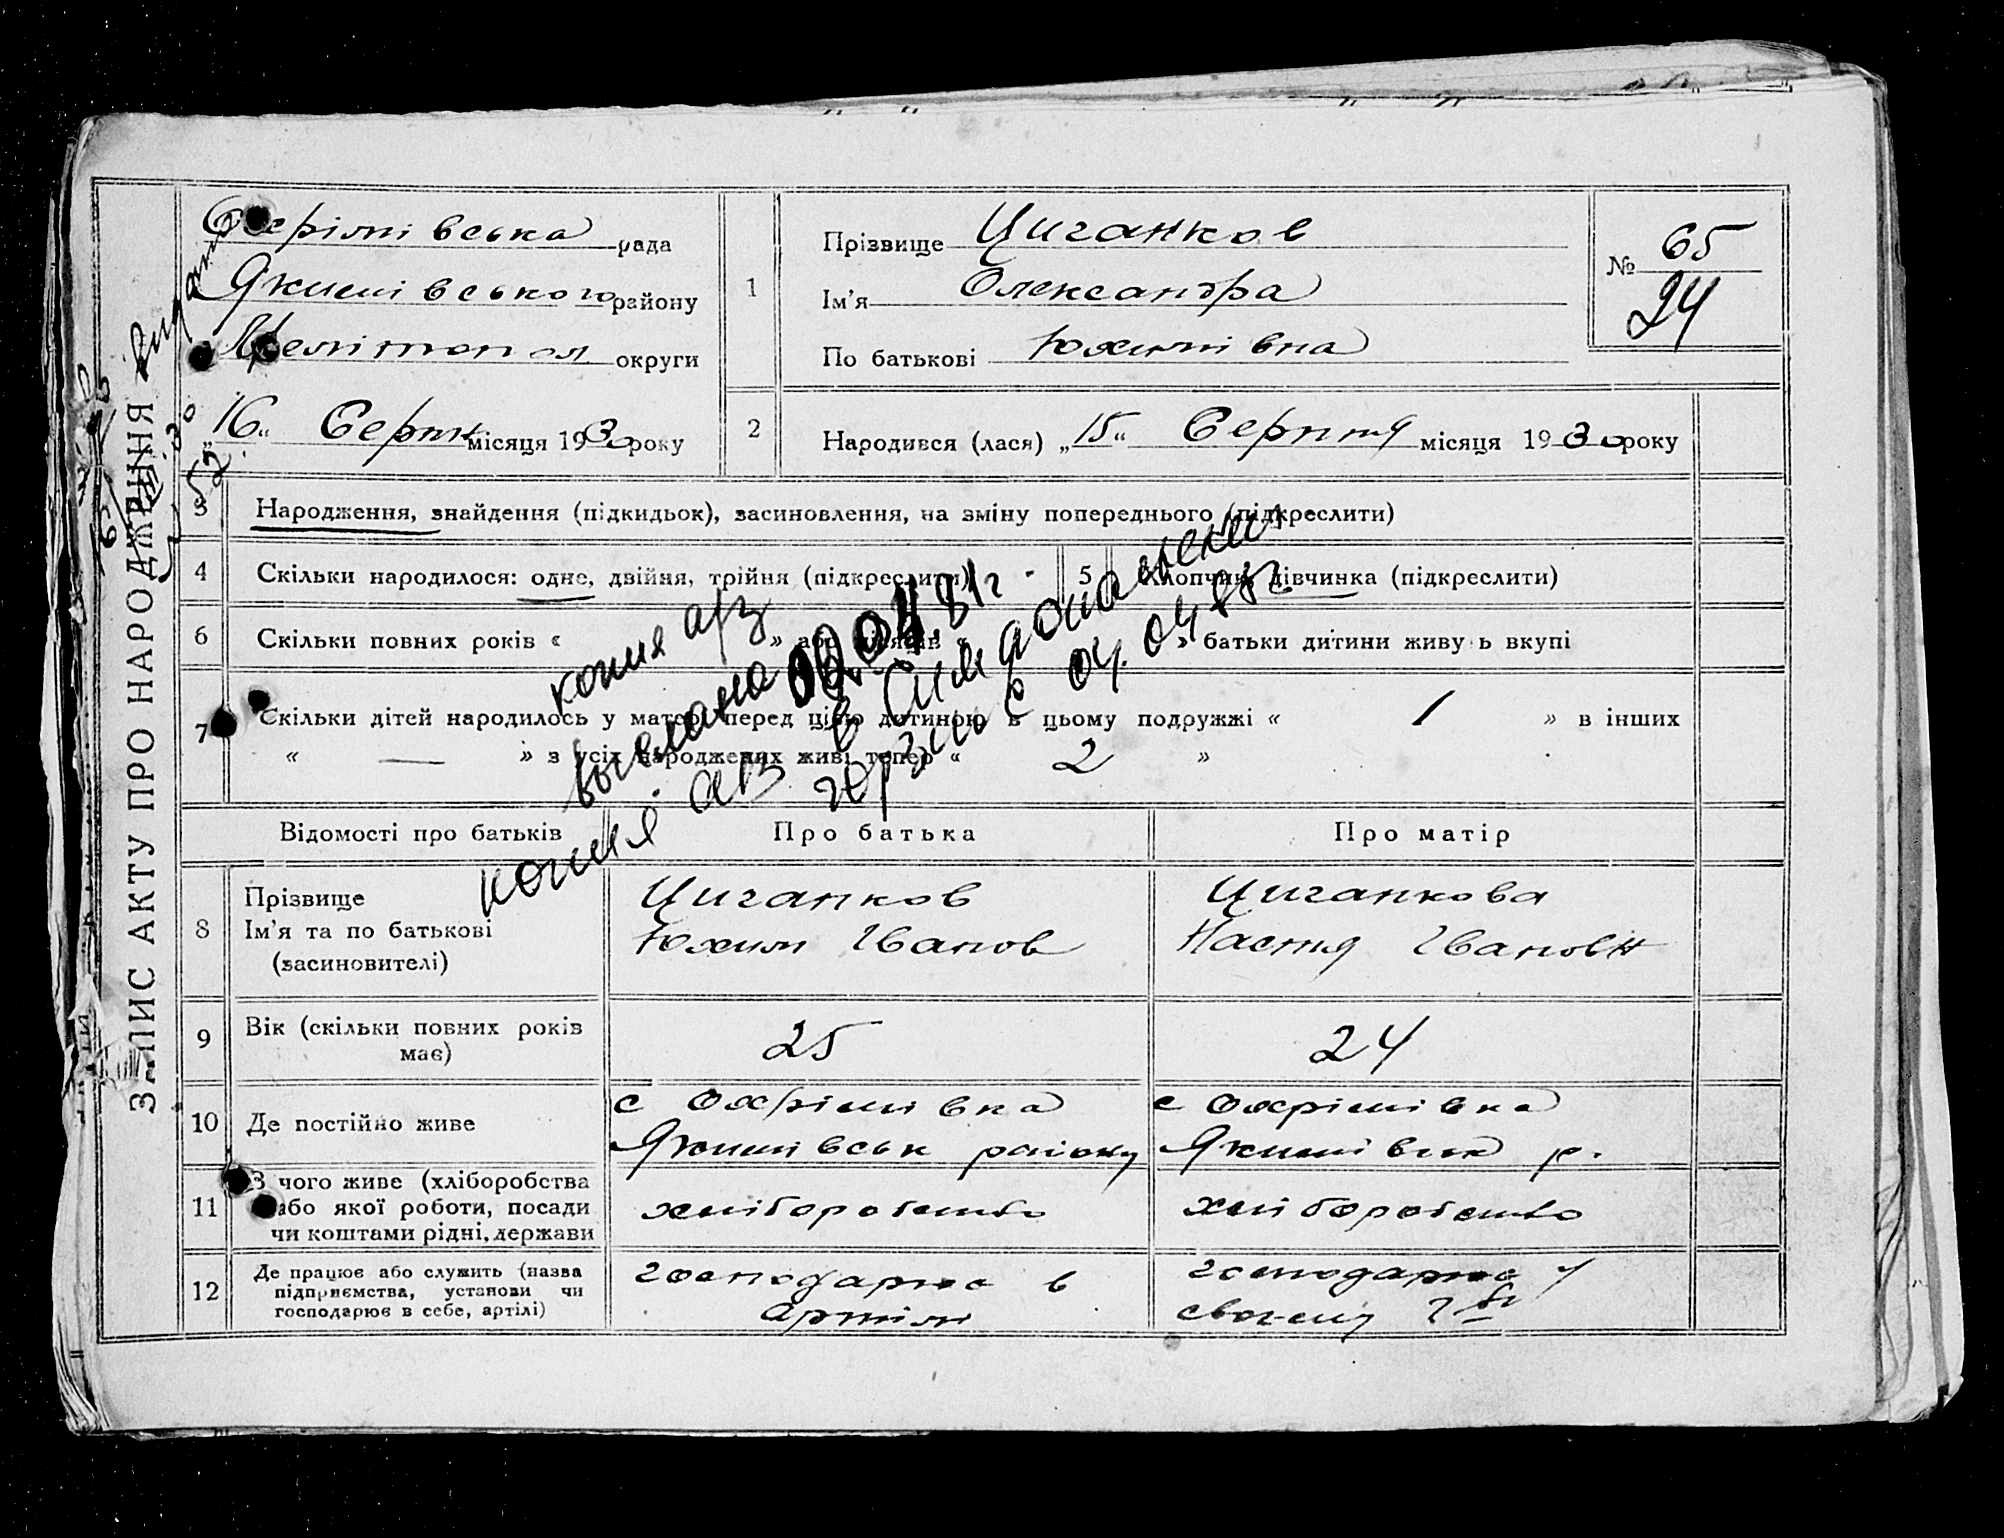 ЗАПИС АКТУ ПРО НАРОДЖЕННЯ
Охрімівська рада
Якимівського району
Мелітопол округи
„16“ Серпн місяця 1930 року
1
Прізвище Циганков
Ім'я Олександра
По батькові Юхимівна
№ 65
24
2
Народився (лася) „15“ Серпня місяця 1930 року
3 Народження, знайдення (підкидьок), засиновлення, на зміну попереднього (підкреслити)
4 Скільки народилося: одне, двійня, трійня (підкреслити)
5 Хлопчик, дівчинка (підкреслити)
6 Скільки повних років « » або місяців « » батьки дитини живуть вкупі
7 Скільки дітей народилось у матері перед цією дитиною в цьому подружжі « 1 » в інших
« — » з усіх народжених живі тепер « 2 »
копия а/з
выслана 02.04.81г.
копия а/з в
04.04.88г
Відомості про батьків
Про батька
Про матір
8 Прізвище
Ім'я та по батькові
(засиновителі)
Циганков
Юхим Іванов
Циганкова
Настя Івановн
9 Вік (скільки повних років має)
25
24
10 Де постійно живе
с Охрімівка
Якимівськ району
с Охрімівка
Якимівськ р.
11 З чого живе (хліборобства
або якої роботи, посади
чи коштами рідні, держави
хліборобство
хліборобство
12 Де працює або служить (назва
підприємства, установи чи
господарює в себе, артілі)
господарює в
артілі
господарює у
своєму